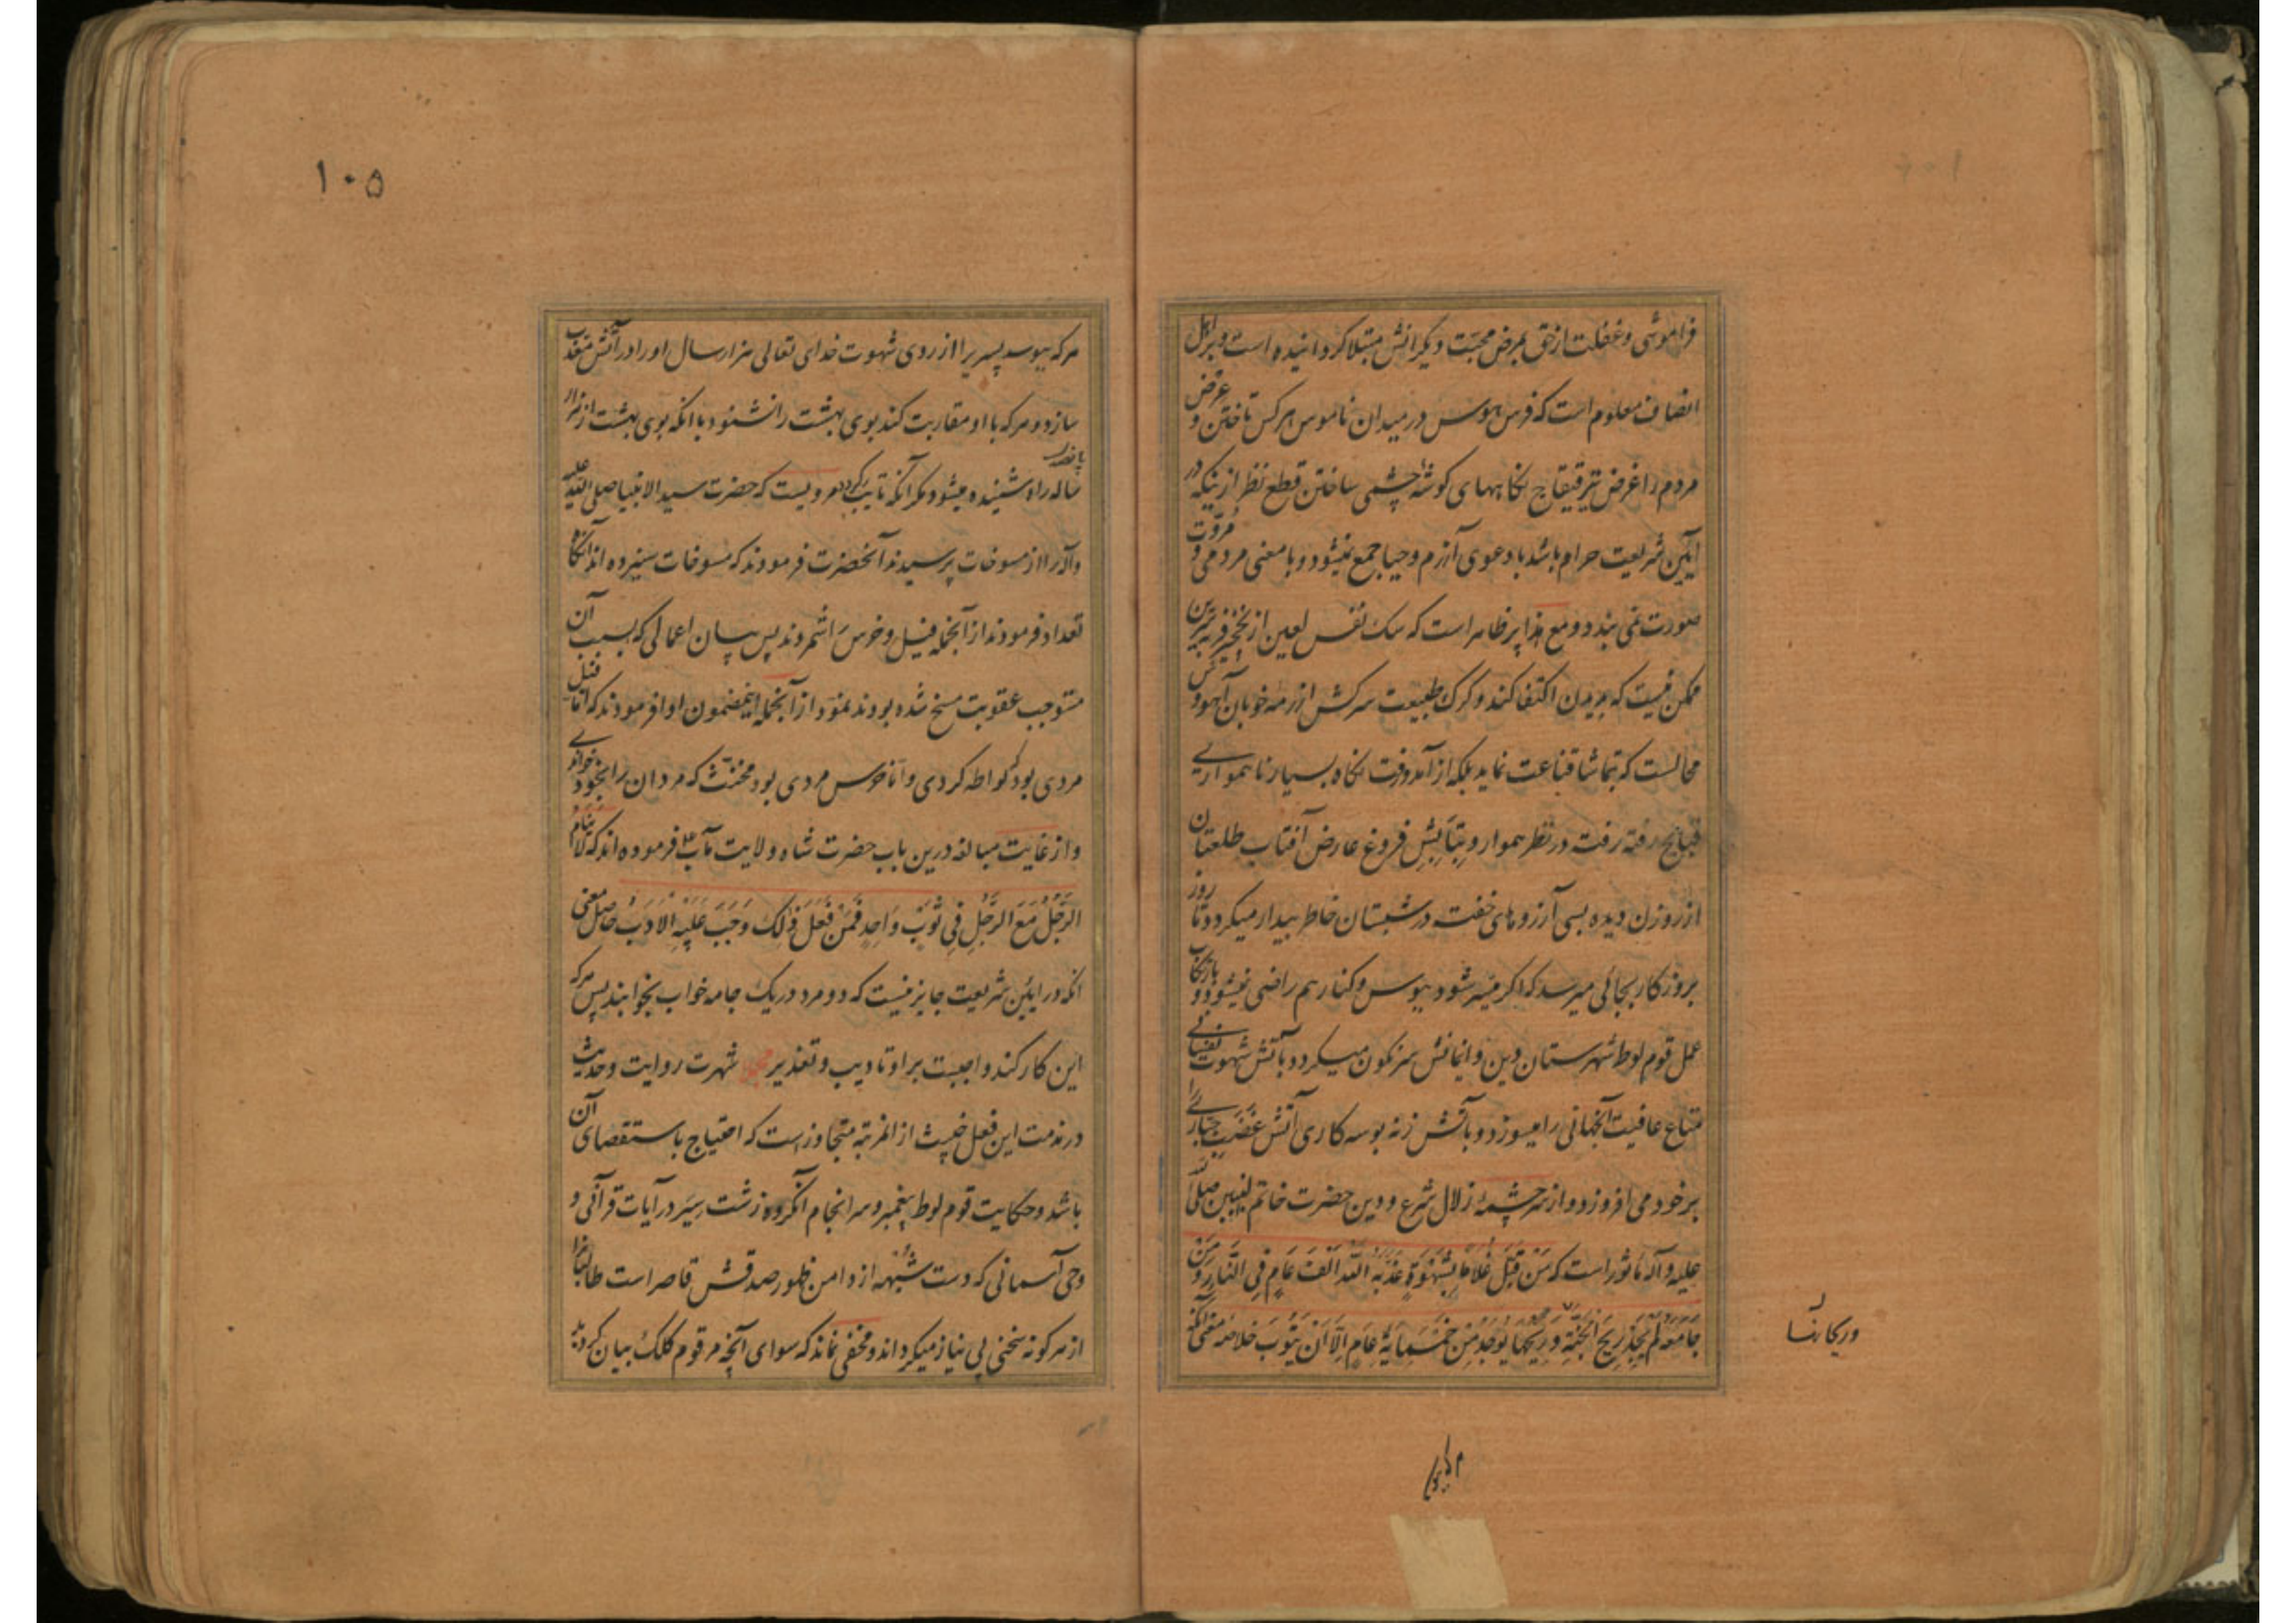 فراموشی و غفلت از حق بمرض محبت دیگرانش مبتلا گردانیده است و بر اهل
انصاف معلوم است که فرس هوس در میدان ناموس هر کس تاختن و عرض
مردم را غرض تیر قیقاج نگاههای گوشه چشمی ساختن قطع نظر از ینکه در
آیین شریعت حرام باشد با دعوی آزرم و حیا جمع نمیشود و با معنی مردمی و مروت
صورت نمی بندد و مع هذا پر ظاهر است که سک نفس لعین از نخجیر فربه سرین
ممکن نیست که بدیدن اکتفا کند و کرک طبیعت سرکش از رمه خوبان آهو وش
محالست که بتماشا قناعت نماید بلکه از آمد و رفت نکاه بسیار ناهمواریی
قبایح رفته رفته در نظر هموار و بتابش فروغ عارض آفتاب طلعتان
از روزن دیده بسی آرزوهای خفته در شبستان خاطر بیدار میکردد تا روز
بروز کار بجائی میرسد که اکر میسر شود ببوس و کنار هم راضی نمیشود و بارتکاب
عمل قوم لوط شهرستان دین و ایمانش سرنکون میکردد و بآتش شهوت نفسانی
متاع عافیت آنجهانی را میسوزد و بآتش زنه بوسه کاری آتش غضب جباری را
بر خود می افروزد و از سرچشمه زلال شرع و دین حضرت خاتم النبیین صلی الله
علیه و آله ماثور است که مَن قَبَّلَ غُلاماً بِشَهوَةٍ عَذَّبَهُ اللهُ اَلفَ عَامٍ فِی النَّارِ وَ مَن
جَامَعَهُ لَم یَجِد رِیحَ الجَنَّةِ وَ رِیحُهَا یُوجَدُ مِن خَمسَمِایَةِ عَامٍ اِلّا اَن یَتُوبَ خلاصه معنی آنکه
۱۰۵
هرکه ببوسد پسریرا از روی شهوت خدای تعالی هزار سال او را در آتش معذب
سازد و هرکه با او مقاربت کند بوی بهشت را نشنود با انکه بوی بهشت از هزار
پانصد
ساله راه شنیده میشود مکر آنکه تایب کردد و مرویست که حضرت سید الانبیا صلی الله علیه
و آله را از مسوخات پرسیدند آنحضرت فرمودند که مسوخات سیزده اند آنگاه
تعداد فرمودند از آنجمله فیل و خرس را شمردند پس بیان اعمالی که بسبب آن
مستوجب عقوبت مسخ شده بودند نمود از آنجمله اینمضمون ادا فرمودند که اما فیل
مردی بود که لواطه کردی و اما خرس مردی بود مخنث که مردان را بخود خواندی
و از غایت مبالغه درین باب حضرت شاه ولایت مآب فرموده اند که لَا یَنَامُ
الرَّجُلُ مَعَ الرَّجُلِ فِی ثَوبٍ وَاحِدٍ فَمَن فَعَلَ ذَلِکَ وَجَبَ عَلَیهِ الاَدَبُ حاصل معنی
انکه در آیین شریعت جایز نیست که دو مرد در یک جامه خواب بخوابند پس هرکه
این کار کند واجبست بر او تادیب و تعذیر شهرت روایت و حدیث
در مذمت این فعل خبیث از انمرتبه متجاوز است که احتیاج باستقصای آن
باشد و حکایت قوم لوط پیغمبر و سرانجام آنکروه زشت سِیَر در آیات قرآنی و
وحی آسمانی که دست شبهه از دامن ظهور صدقش قاصر است طالبانرا
از هرکونه سخنی بی نیاز میکرداند و مخفی نماند که سوای آنچه مرقوم کلک بیان